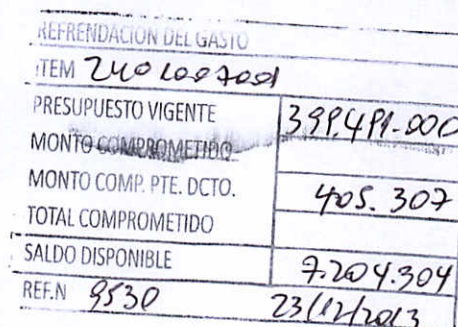 REFRENDACION DEL GASTO
ITEM 2401007001
PRESUPUESTO VIGENTE 399.491.000
MONTO COMPROMETIDO
MONTO COMP. PTE. DCTO. 405.307
TOTAL COMPROMETIDO
SALDO DISPONIBLE 7.204.304
REF.N 9530 23/12/2013